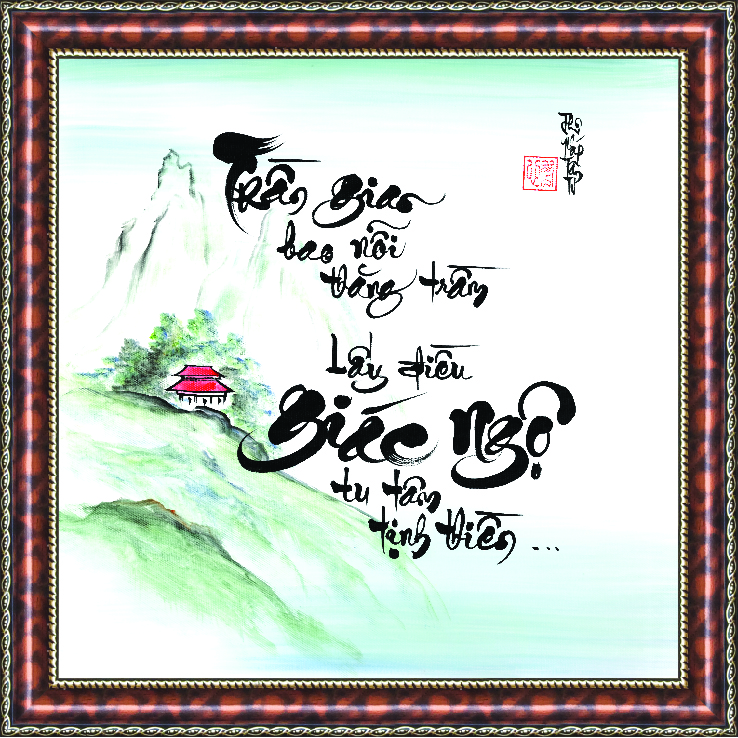 Trần gian
bao nỗi
thăng trầm
Lấy điều
giác ngộ
tu tâm
tịnh thiền ...